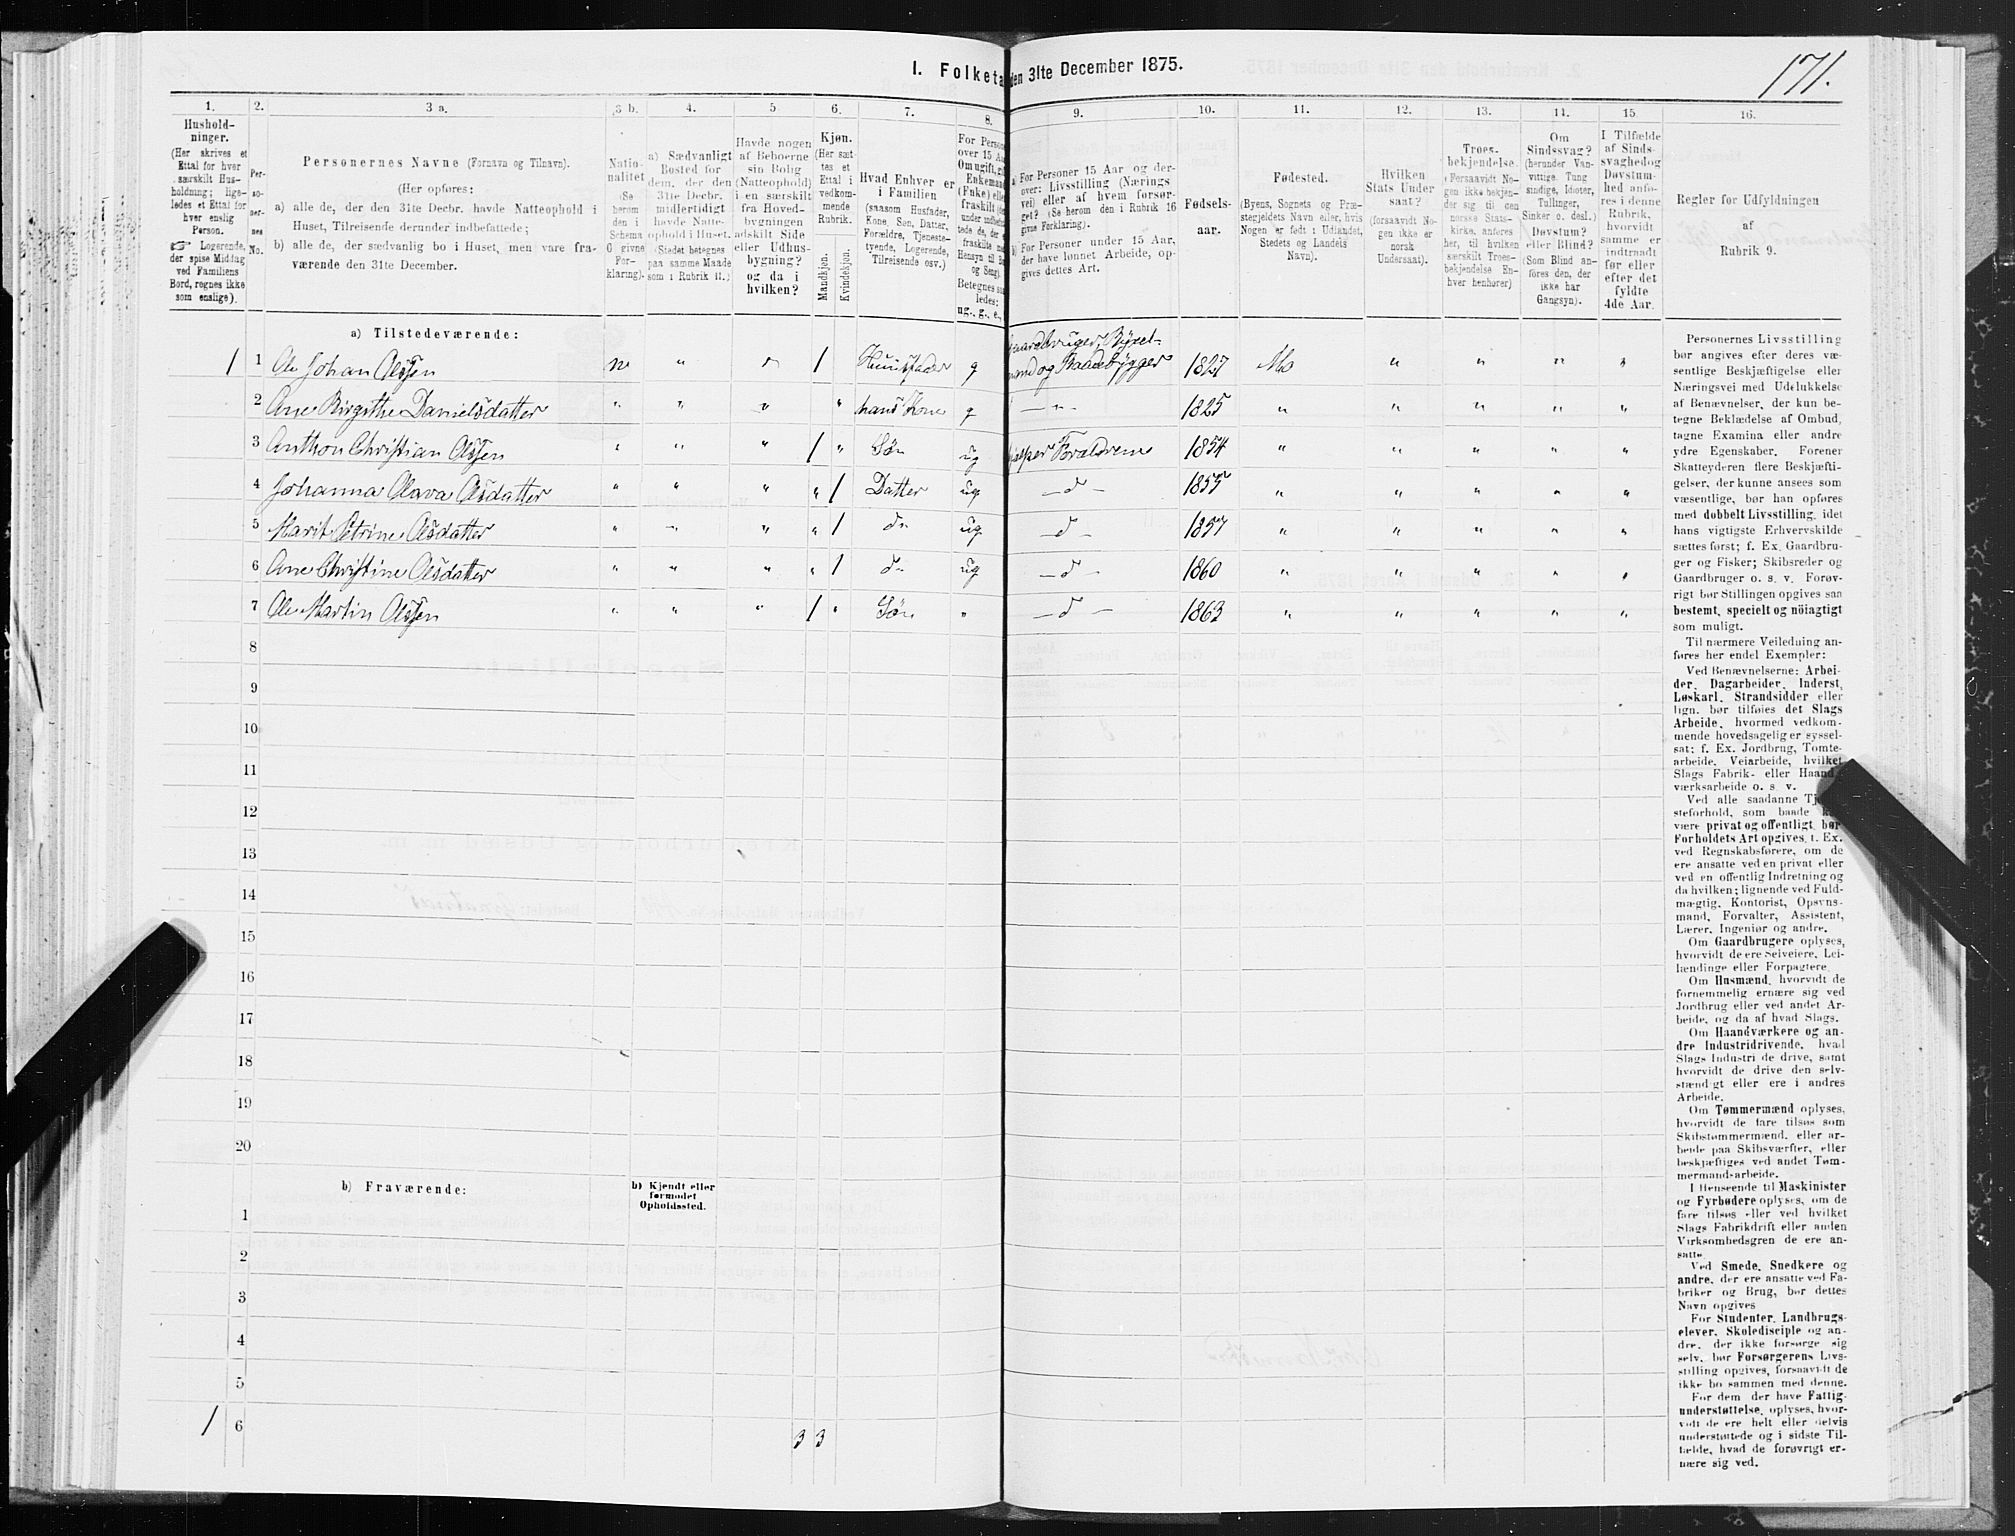 171.
I. Folketa
den 31te December 1875.
1.
2.
3 a.
3 b.
4.
5
6.
7.
8.
9.
10.
11.
12.
13.
14.
15.
16.
Hushold-
ninger.
(Her skrives et
Ettal for hver
særskilt Hus-
holdning; lige-
ledes et Ettal for
hver enslig
Person.
☞ Logerende,
der spise Middag
ved Familiens
Bord, regnes ikke
som enslige).
Per-
so-
ner-
nes
No.
Personernes Navne (Fornavn og Tilnavn).
(Her opføres:
a) alle de, der den 31te Decbr. havde Natteophold i
Huset, Tilreisende derunder indbefattede;
b) alle de, der sædvanlig bo i Huset, men vare fra-
værende den 31te December.
Natio-
nalitet
(Se
herom
den i
Schema
O givne
For-
klaring).
a) Sædvanligt
Bosted for
dem, der den
31te Decbr.
midlertidigt
havde Natte-
ophold i Huset.
(Stedet betegnes
paa samme Maade
som i Rubrik 11.)
Havde nogen
af Beboerne
sin Bolig
(Natteophold)
i en særskilt
fra Hoved-
bygningen
adskilt Side
eller Udhus-
bygning?
og da i
hvilken?
Kjøn.
(Her sæt-
tes et
Ettal i
vedkom-
mende
Rubrik.
Mandkjøn.
Kvindekjøn.
Hvad Enhver er
i Familien
(saasom Husfader,
Kone, Søn, Datter,
Forældre, Tjeneste-
tyende, Logerende,
Tilreisende osv.)
For Person
over 15 Aa
Om ugift, g
Enkeman
(Fnke) elle
fraskilt
under indbef
tede de,
fraskilte
Hensyn til B
og Seng).
Betegnes saa
ledes:
ug., g., e.,
a) For Personer 15 Aar og der-
over: Livsstilling (Nærings
vei) eller af hvem forsør-
get? (Se herom den i Rubrik 16
givne Forklaring).
b) For Personer under 15 Aar,
der have lønnet Arbeide, op-
gives dettes Art.
Fødsels-
aar.
Fødested.
(Byens, Sognets og Præ-
stegjeldets Navn eller, hvis
Nogen er født i Udlandet,
Stedets og Landets
Navn).
Hvilken
Stats Under
saat?
(forsaavidt No-
gen ikke er
norsk
Undersaat).
Troes-
bekjendelse.
(Forsaavidt No-
gen ikke bekjen-
der sig til den
norske Stats-
kirke, anføres
her, til hvilken
særskilt Troes-
bekjendelse En-
hver henhører)
Om
Sindssvag?
(herunder Van-
vittige, Tung
sindige, Idioter,
Tullinger,
Sinker o. desl.)
Døvstum?
eller Blind?
(Som Blind an-
føres den, der
ikke har
Gangsyn).
I Tilfælde
af Sinds-
svaghedog
Døvstum-
hed anfø-
res i denne
Rubrik,
hvorvidt
samme er
indtraadt
før eller
efter det
fyldte
4de Aar.
Regler for Udfyldningen
af
Rubrik 9.
a) Tilstedeværende:
1 1 Ole Johan Olsen n " " 1 Huusfader g Gaardbruger, Bøxel-
mand og Baadebygger 1827 Mo " " " "
2 Ane Birgithe Danielsdatter " " " " hans Kone g — " — 1825 " " " " "
3 Anthon Christian Olsen " " " 1 " Søn ug hjelper Forældrene 1854 " " " " "
4 Johanna Olava Olsdatter " " " " 1 Datter ug — d — 1855 " " " " "
5 Marit Petrine Olsdatter " " " " 1 do ug — d — 1857 " " " " "
6 Ane Christine Olsdatter " " " " 1 do ug — d — 1860 " " " " "
7 Ole Martin Olsen " " " 1 " Søn " — d — 1863 " " " " "
8
9
10
11
12
13
14
15
16
17
18
19
20
b) Fraværende:
b) Kjendt eller
formodet
Opholdssted.
1
2
3
4
5
1 6 3 3
Personernes Livsstilling
bør angives efter deres væ-
sentlige Beskjæftigelse eller
Næringsvei med Udelukkelse
af Benævnelser, der kun be-
tegne Beklædelse af Ombud,
tagne Examina eller andre
ydre Egenskaber. Forener
Skatteyderen flere Beskjæfti-
gelser, der kunne ansees som
væsentlige, bør han opføres
med dobbelt Livsstilling, idet
hans vigtigste Erhvervskilde
sættes først; f. Ex. Gaardbru-
ger og Fisker; Skibsreder og
Gaardbruger o. s. v. Forøv-
rigt bør Stillingen opgives saa
bestemt, specielt og nöiagtigt
som muligt.
Til nærmere Veiledning an-
føres her endel Exempler:
Ved Benævnelserne: Arbei-
der, Dagarbeider, Inderst,
Løskarl, Strandsidder eller
lign. bør tilføies det Slags
Arbeide, hvormed vedkom-
mende hovedsagelig er syssel-
sat; f. Ex. Jordbrug, Tomte-
arbeide, Veiarbeide, hvilket
Slags Fabrik- eller Haand-
værksarbeide o. s. v.
Ved alle saadanne Tje
steforhold, som baade k
være privat og offentligt, bør
Forholdets Art opgives, t. Ex.
ved Regnskabsførere, om de
ere ansatte ved en privat eller
ved en offentlig Indretning og
da hvilken; lignende ved Fuld-
mægtig, Kontorist, Opsyns-
mand, Forvalter, Assistent,
Lærer, Ingeniør og andre.
Om Gaardbrugere oplyses,
hvorvidt de ere Selveiere, Lei-
lændinge eller Forpagtere.
Om Husmænd, hvorvidt de
fornemmelig ernære sig ved
Jordbrug eller ved andet Ar-
beide, og da af hvad Slags.
Om Haandværkere og an-
dre Industridrivende, hvad
Slags Industri de drive, samt
hvorvidt de drive den selv-
stændigt eller ere i andres
Arbeide.
Om Tømmermænd oplyses,
hvorvidt de fare tilsøs som
Skibstømmermænd, eller ar-
beide paa Skibsværfter, eller
beskjæftiges ved andet Tøm-
mermandsarbeide.
I Henseende til Maskinister
og Fyrbødere oplyses, om de
fare tilsøs eller ved hvilket
Slags Fabrikdrift eller anden
Virksomhedsgren de ere an-
satte.
Ved Smede, Snedkere og
andre, der ere ansatte ved Fa-
briker og Brug, bør dettes
Navn opgives
For Studenter, Landbrugs-
elever, Skoledisciple og an-
dre, der ikke forsørge sig
selv, bør Forsørgerens Livs-
stilling opgives, forsaavidt de
ikke bo sammen med denne.
For dem, der have Fattig-
understøttelse, oplyses, hvor-
vidt de ere helt eller delvis
understøttede og i sidste Til-
fælde, hvad de forøvrigt er-
nære sig ved.